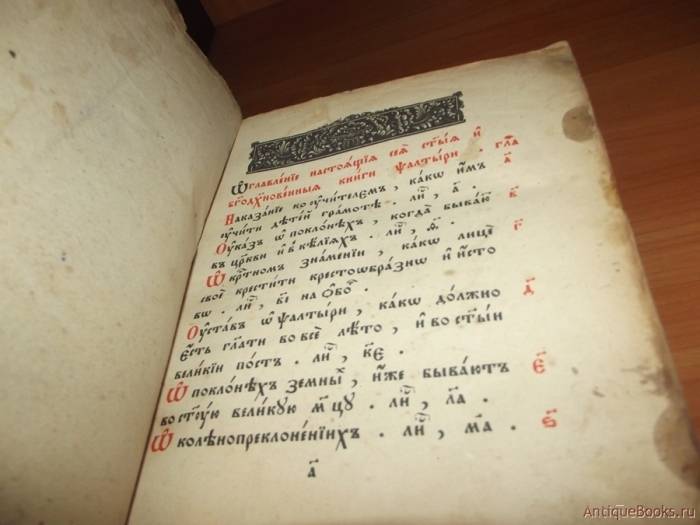 Ѡглавле́нїе настоѧ́щїѧ сеѧ̀ ст҃ы́ѧ и҆
бг҃одх҃нове́нныѧ кни́ги ѱалты́ри . гла
Наказа́нїе ко ᲂу҆чи́телємъ , ка́кѡ и҆̀мъ а҃
ᲂу҆чи́ти дѣте́й гра́мотѣ . ли , а҃ .
Оу҆ка́зъ ѡ҆ покло́нѣхъ , когда̀ быва́ю в҃
въ цр҃кви и҆ в ке́лїѧхъ . ли ,
Ѡ҆ крⷭ҇тномъ зна́менїи , ка́кѡ лицѐ г҃
своѐ крести́ти крестоѡбра́знѡ и҆ и҆́сто
вѡ . ли , в҃і на ѡ҆бо .
Оу҆ста́въ ѡ҆ ѱалты́ри , ка́кѡ до́лжно д҃
є҆́сть гл҃ати во всѐ лѣ́то , и҆ во ст҃ы́и
вели́кїи по́стъ . ли , к҃є .
Ѡ҆ покло́нѣхъ земны́ , и҆̀же быва́ютъ є҃
во ст҃ꙋ́ю вели́кꙋю мцⷣꙋ . ли , л҃а .
Ѡ҆ колѣнопреклоне́нїихъ . ли , м҃а . ѕ҃
а҃
AntiqueBooks.ru